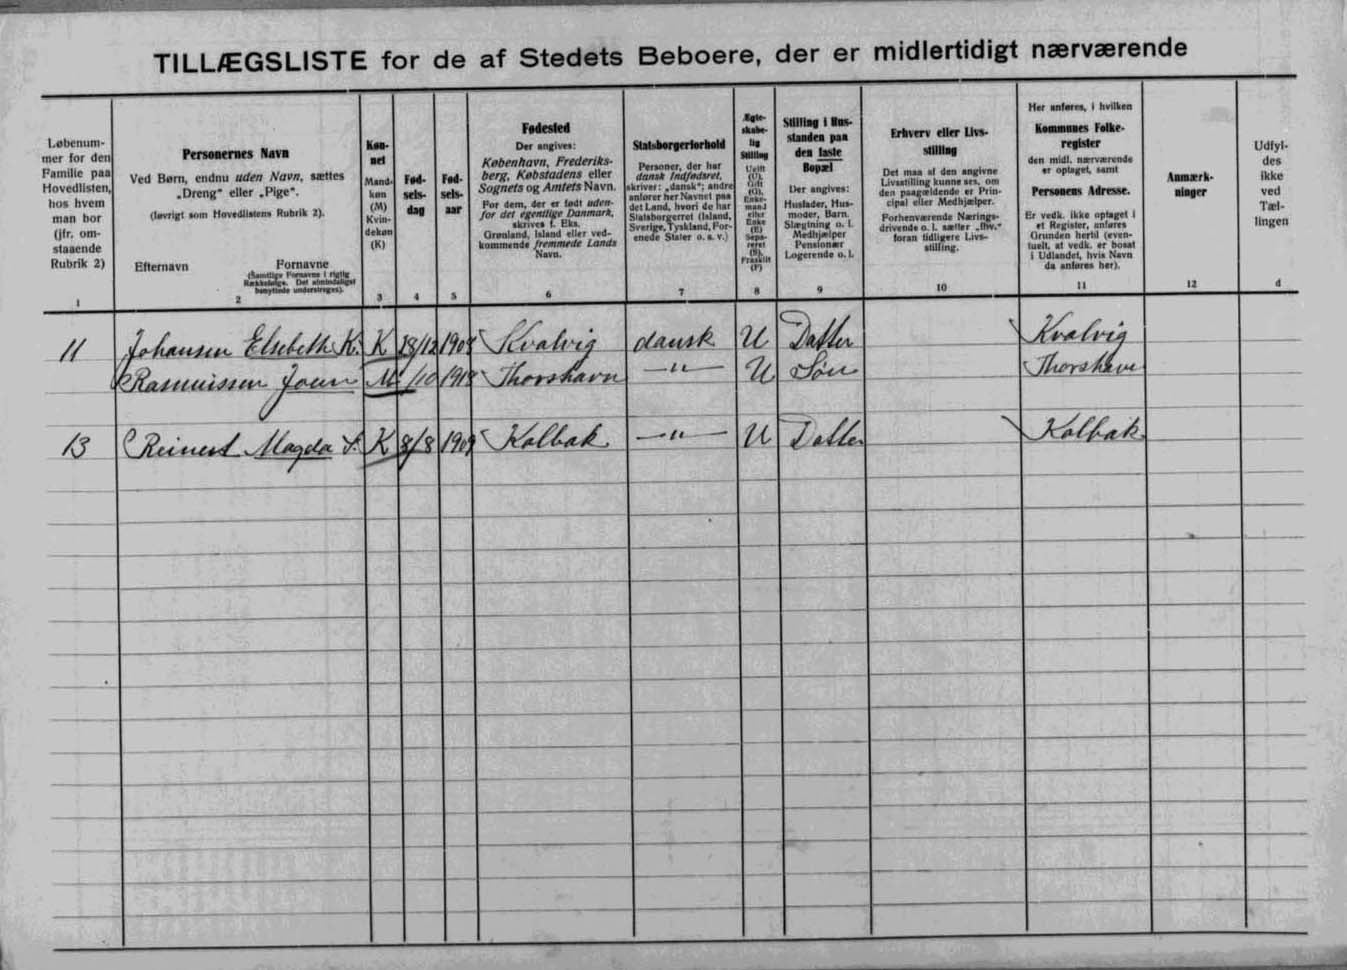 TILLÆGSLISTE for de af Stedets Beboere, der er midlertidigt nærværende
Løbenum-
mer for den
Familie paa
Hovedlisten,
hos hvem
man bor
(jfr. om-
staaende
Rubrik 2)
1
Personernes Navn
Ved Børn, endnu uden Navn, sættes
„Dreng" eller „Pige".
(Iøvrigt som Hovedlistens Rubrik 2).
Efternavn
Fornavne
(Samtlige Fornavne i rigtig
Rækkefølge. Det almindeligst
benyttede understreges).
2
Køn-
net
Mand-
køn
(M)
Kvin-
dekøn
(K)
3
Fød-
sels-
dag
4
Fød-
sels-
aar
5
Fødested
Der angives:
København, Frederiks-
berg, Købstadens eller
Sognets og Amtets Navn.
For dem, der er født uden-
for det egentlige Danmark,
skrives f. Eks.
Grønland, Island eller ved-
kommende fremmede Lands
Navn.
6
Statsborgerforhold
Personer, der har
dansk Indfødsret,
skriver: „dansk"; andre
anfører her Navnet paa
det Land, hvori de har
Statsborgerret (Island,
Sverige, Tyskland, For-
enede Stater o. s. v.)
7
Ægte-
skabe-
lig
Stilling
Ugift
(U),
Gift
(G),
Enke-
mand
eller
Enke
(E)
Sepa-
reret
(S),
Fraskilt
(F)
8
Stilling i Hus-
standen paa
den faste
Bopæl
Der angives:
Husfader, Hus-
moder, Barn.
Slægtning o. l.
Medhjælper
Pensionær
Logerende o. l.
9
Erhverv eller Livs-
stilling
Det maa af den angivne
Livsstilling kunne ses, om
den paagældende er Prin-
cipal eller Medhjælper.
Forhenværende Nærings-
drivende o. l. sætter „fhv."
foran tidligere Livs-
stilling.
10
Her anføres, i hvilken
Kommunes Folke-
register
den midl. nærværende
er optaget, samt
Personens Adresse.
Er vedk. ikke optaget i
et Register, anføres
Grunden hertil (even-
tuelt, at vedk. er bosat
i Udlandet, hvis Navn
da anføres her).
11
Anmærk-
ninger
12
Udfyl-
des
ikke
ved
Tæl-
lingen
d
11 Johansen Elsebeth K. K 18/12 1908 Kvalvig dansk U Datter Kvalvig
Rasmussen Joen M /10 1918 Thorshavn —"— U Søn Thorshavn
13 Reinert Magda S. K 8/8 1909 Kolbak —"— U Datter Kolbak